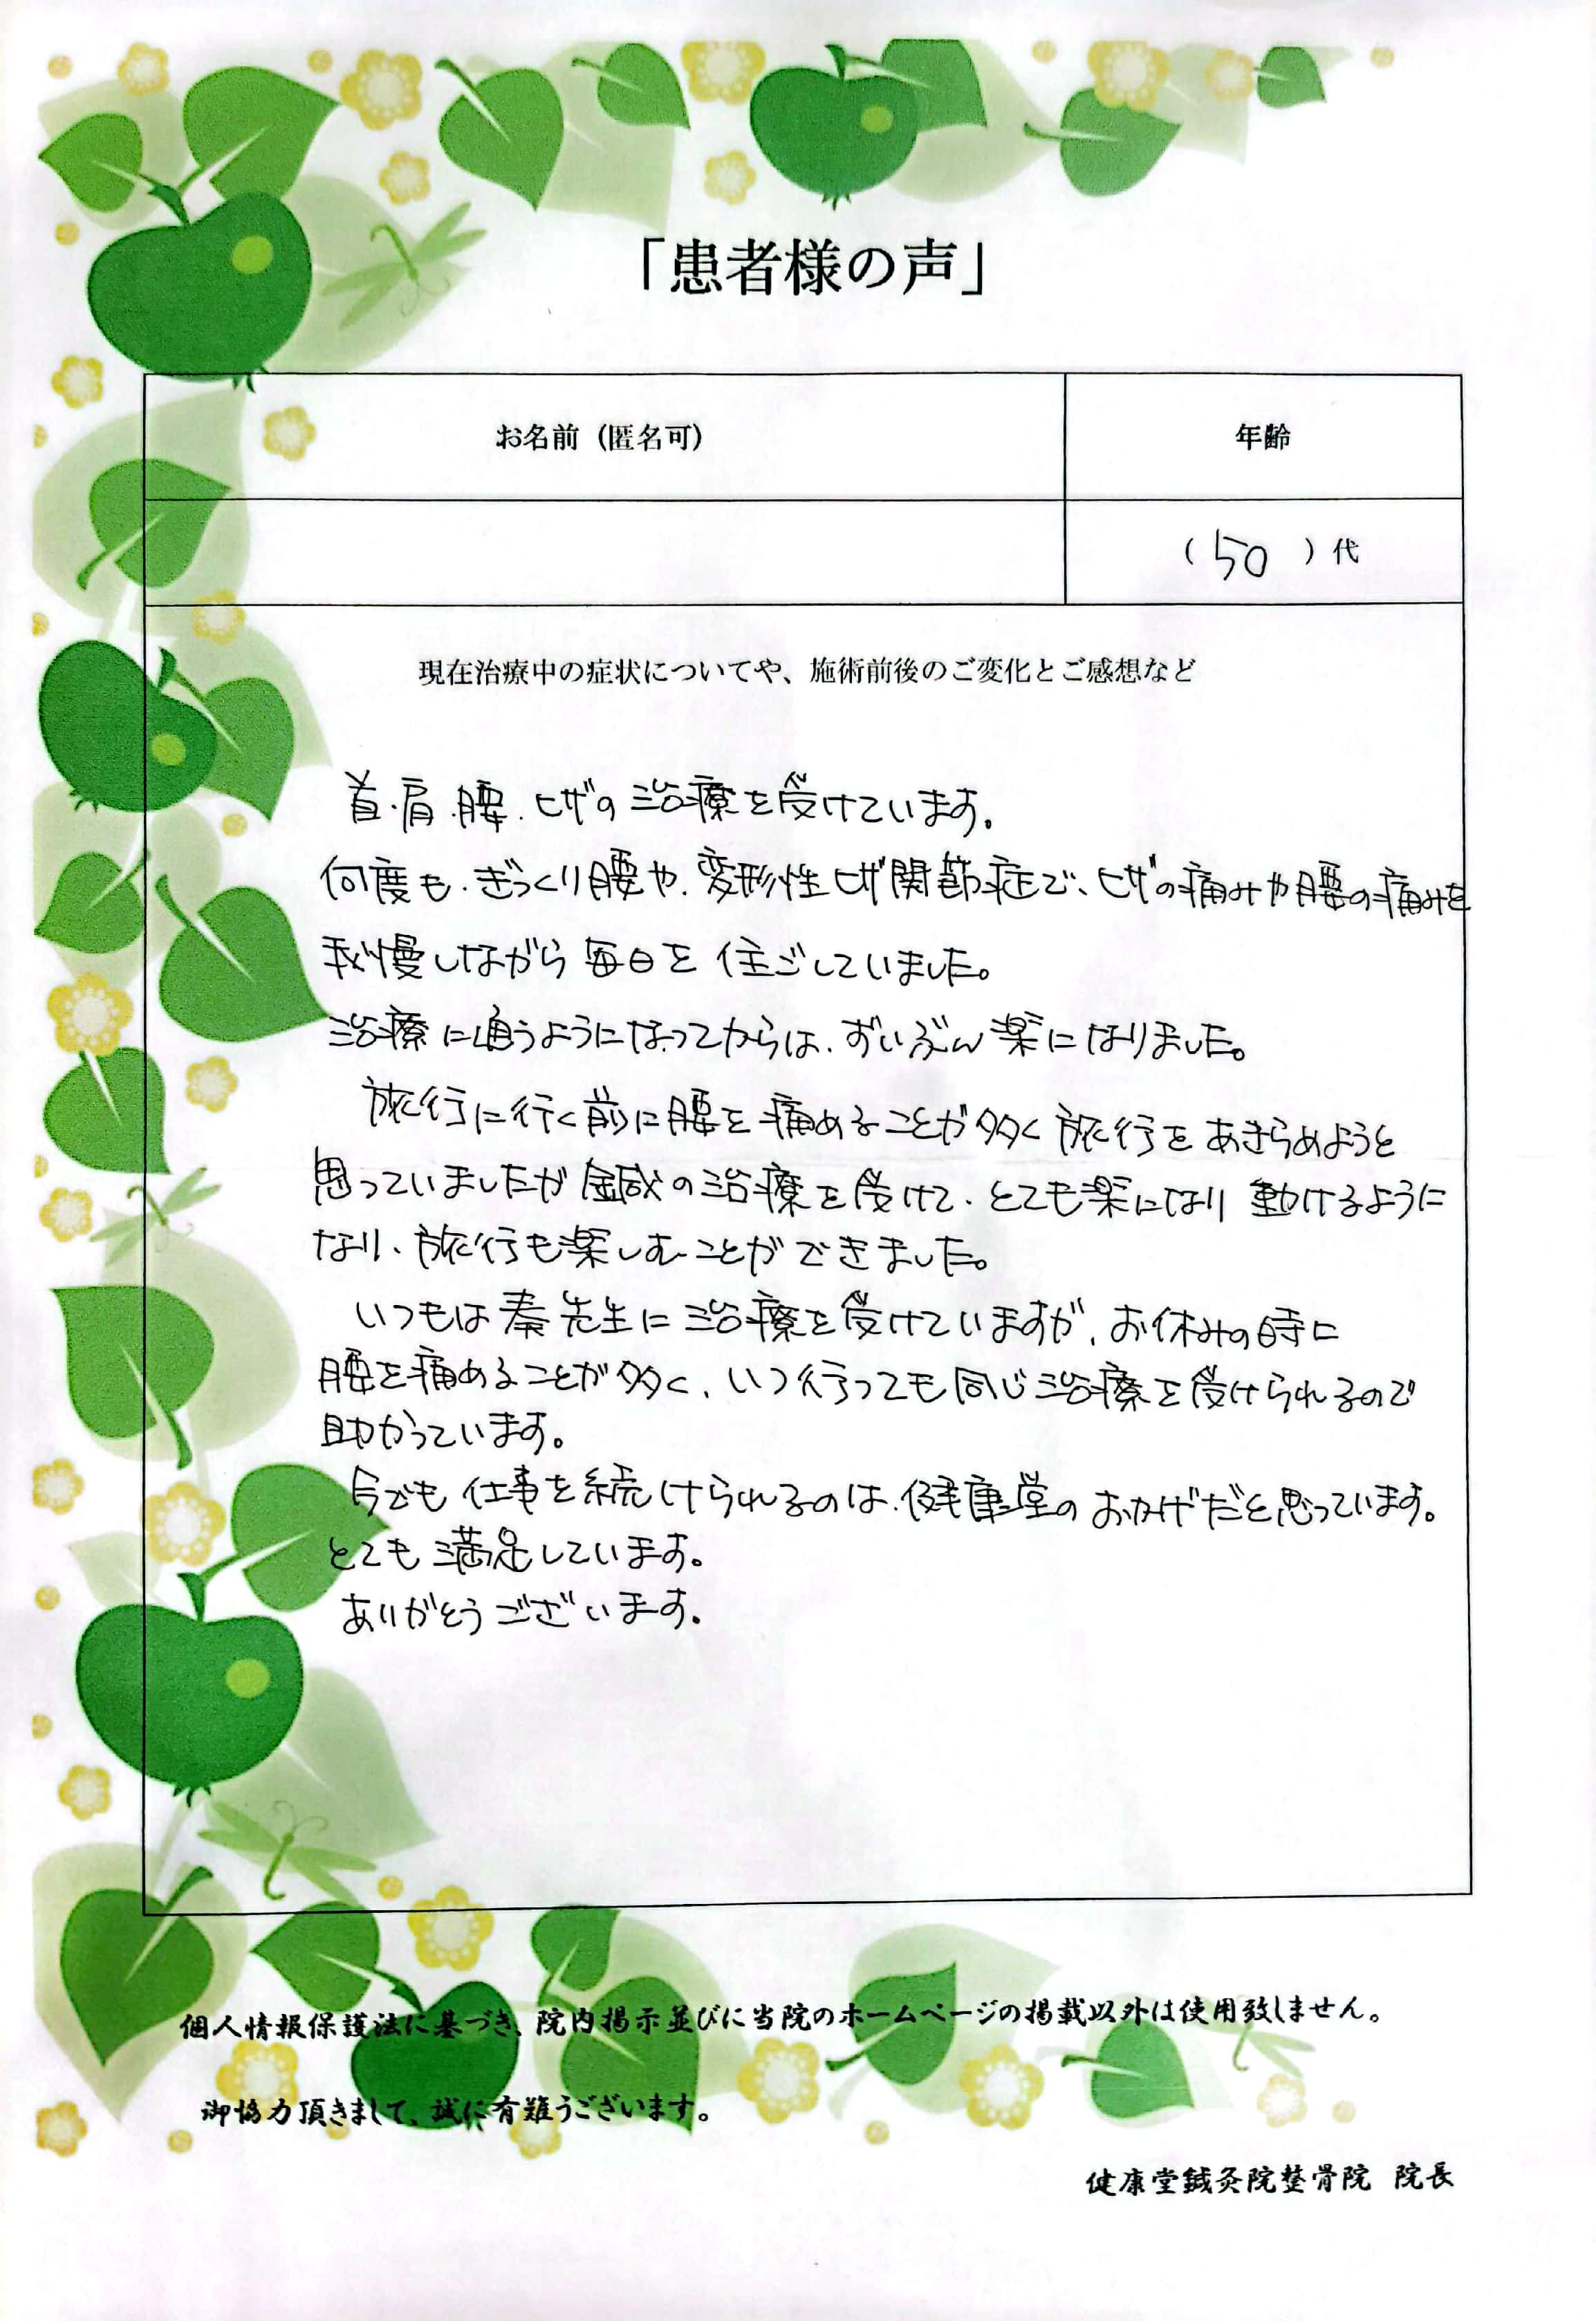 「患者様の声」
お名前（匿名可）
年齢
（50）代
現在治療中の症状についてや、施術前後のご変化とご感想など
首・肩・腰・ヒザの治療を受けています。
何度も・ぎっくり腰や、変形性ヒザ関節症で、ヒザの痛みや腰の痛みを
我慢しながら毎日を 住ごしていました。
治療に通うようになってからは、ずいぶん楽になりました。
旅行に行く前に腰を痛めることが多く旅行をあきらめようと
思っていましたが 鍼の治療を受けて、とても楽になり 動けるように
なり、旅行も楽しむことができました。
いつもは秦先生に治療を受けていますが、お休みの時に
腰を痛めることが多く、いつ行っても同じ治療を受けられるので
助かっています。
今でも仕事を続けられるのは、健康堂のおかげだと思っています。
とても満足しています。
ありがとうございます。
個人情報保護法に基づき、院内掲示並びに当院のホームページの掲載以外は使用致しません。
御協力頂きまして、誠に有難うございます。
健康堂鍼灸院整骨院 院長